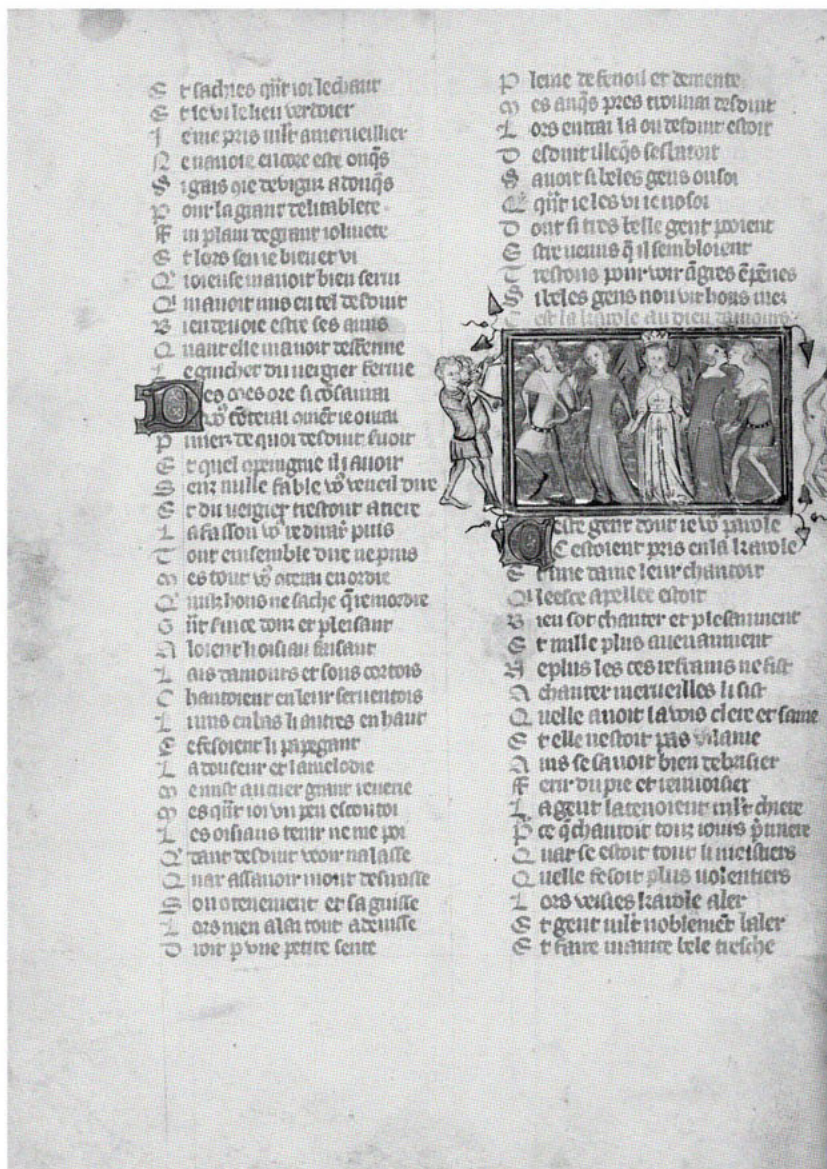 E t sachies qñt ioi le chant
E t le vi le lieu verdoier
I e me pris mlt a merueillier
N e nauoie encore este onq̃s
S i gais q̃ie deuigni adonq̃s
P our la grant delitablete
F ui plain de grant ioliuete
E t lors sen ie bien et vi
Q̃ oiseuse mauoit bien serui
Q̃ mauoit mis en tel desduit
B ien deuoie estre ses amis
Q uant elle mauoit desferme
L e guichet du vergier ferme
D es mes ore si cõ saurai
vo9 cõterai cõment ie ouurai
P rimez de quoi desduit seruoit
E t quel cõpeingnie il i auoit
S enz nulle fable vo9 vueil dire
E t du vergier trestout a tiere
L a fasson vo9 redirai puis
T out ensemble dire ne puis
M es tout vo9 conterai en ordre
Q̃ nulz hons ne sache q̃ remordre
G ñt seruice douz et pleisant
A loient li oisiau faisant
L ais damours et sons cortois
C hantoient en leur seruentois
L i uns en bas li autres en haut
C e fesoient li papegaut
L a douseur et la melodie
M e mist au cuer grant reuerie
M es qñt ioi vn peu escoute
L es oisiaus tenir ne me poi
Q̃ dant desduit veoir nalasse
Q uar a sauoir mout desirasse
S on contenement et sa guisse
L ors men alai tout a deuisse
D roit p vne petite sente
P leine de fenoil et de mente
M es auq̃s pres trouuai desduit
L ors entrai la ou desduit estoit
D esduit illeq̃s sesbatoit
S auoit si beles gens o soi
Q̃ qñt ie les vi ie ne soi
D ont si tres belle gent pooient
E stre uenus q̃ il sembloient
T restous pour voir ãgres ẽpẽnes
S i beles gens ne vit hons nez
C est la karole au dieu damours
C este gent dont ie vo9 parole
S estoient pris en la karole
E t une dame leur chantoit
Q̃ leesce apellee estoit
B ien sot chanter et plesamment
E t mille plus auenaument
N e plus bel ces refrains ne fist
A chanter merueilles li sist
Q uelle auoit la vois clere et saine
E t elle nestoit pas vilaine
A ins se sauoit bien debrisier
F erir du pie et renuoisier
L a gent la tenoient mlt chiere
P ce q̃ chantoit touz iours p̃miere
Q uar ce estoit tout li mestiers
Q uelle fesoit plus uolentiers
L ors veisies karole aler
E t gent mlt noblemẽt baler
E t faire mainte bele tresche